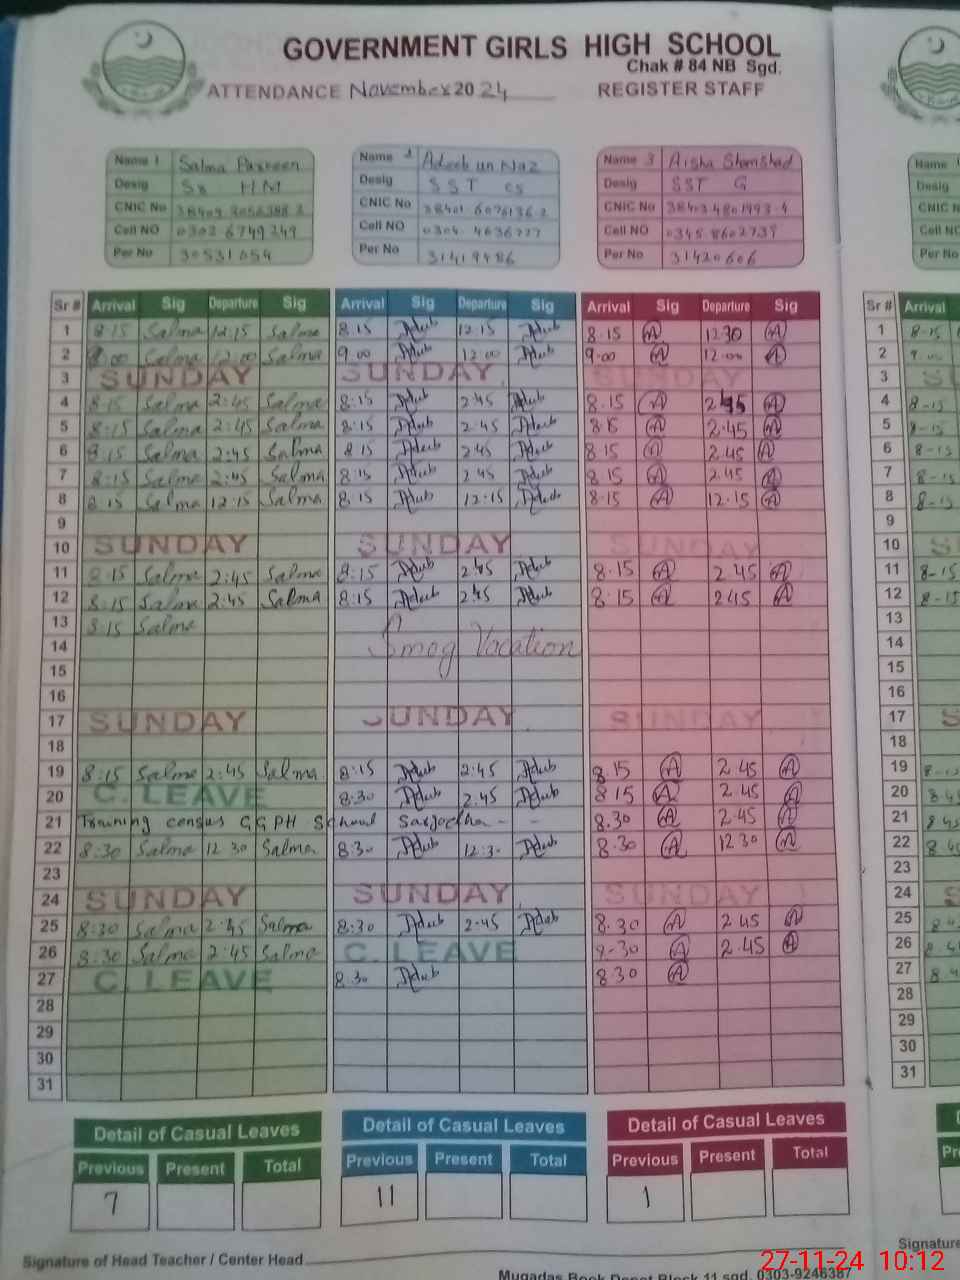 GOVERNMENT GIRLS HIGH SCHOOL
Chak # 84 NB Sgd.
ATTENDANCE November 2024 REGISTER STAFF
Name 1 Salma Parveen Name 2 Adeeb un Naz Name 3 Aisha Shamshad
Desig Sr HM Desig SST CS Desig SST G
CNIC No CNIC No CNIC No
Cell NO Cell NO Cell NO
Per No 30531054 Per No 31419486 Per No 31420606
Sr # Arrival Sig Departure Sig Arrival Sig Departure Sig Arrival Sig Departure Sig Sr # Arrival
1 8:15 Salma 12:15 Salma 8:15 Adeeb 12:15 Adeeb 8.15 A 12.30 A 1 8-15
2 9:00 Salma 12:00 Salma 9.00 Adeeb 12:00 Adeeb 9.00 A 12.00 A 2
3 SUNDAY SUNDAY SUNDAY 3
4 8:15 Salma 2:45 Salma 8:15 Adeeb 2:45 Adeeb 8.15 A 2.45 A 4 8-15
5 8:15 Salma 2:45 Salma 8:15 Adeeb 2.45 Adeeb 8.15 A 2.45 A 5 8-15
6 8:15 Salma 2:45 Salma 8 15 Adeeb 2.45 Adeeb 8.15 A 2.45 A 6 8-15
7 8:15 Salma 2:45 Salma 8:15 Adeeb 2.45 Adeeb 8.15 A 2.45 A 7 8-15
8 8:15 Salma 12:15 Salma 8:15 Adeeb 12:15 Adeeb 8.15 A 12.15 A 8 8-15
9 9
10 SUNDAY SUNDAY SUNDAY 10
11 8:15 Salma 2:45 Salma 8:15 Adeeb 2:45 Adeeb 8.15 A 2.45 A 11 8-15
12 8:15 Salma 2:45 Salma 8:15 Adeeb 2:45 Adeeb 8.15 A 2.45 A 12 8-15
13 8:15 Salma 13
14 Smog Vacation 14
15 15
16 16
17 SUNDAY SUNDAY SUNDAY 17
18 18
19 8:15 Salma 2:45 Salma 8:15 Adeeb 2:45 Adeeb 8.15 A 2.45 A 19
20 C. LEAVE 8:30 Adeeb 2.45 Adeeb 8.15 A 2.45 A 20
21 Training census G G P H School Sargodha - - 8.30 A 2.45 A 21
22 8:30 Salma 12 30 Salma 8:30 Adeeb 12:30 Adeeb 8.30 A 12 30 A 22
23 23
24 SUNDAY SUNDAY SUNDAY 24
25 8:30 Salma 2:45 Salma 8:30 Adeeb 2.45 Adeeb 8.30 A 2 45 A 25
26 8:30 Salma 2:45 Salma C. LEAVE 8-30 A 2.45 A 26
27 C. LEAVE 8 30 Adeeb 8.30 A 27
28 28
29 29
30 30
31 31
Detail of Casual Leaves Detail of Casual Leaves Detail of Casual Leaves
Previous Present Total Previous Present Total Previous Present Total
7 11 1
Signature of Head Teacher / Center Head
Muqadas Book Depot Block 11 sgd. 0303-9246387
27-11-24 10:12